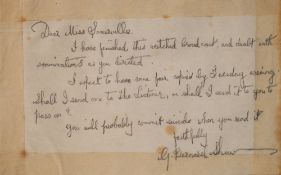 Dear Miss Somerville
I have finished this wretched broadcast, and dealt with
emendations as you directed.
I expect to have some fair copies by Tuesday evening
Shall I send one to The Listener, or shall I send it to you to
pass on?
You will probably commit suicide when you read it
faithfully
G. Bernard Shaw